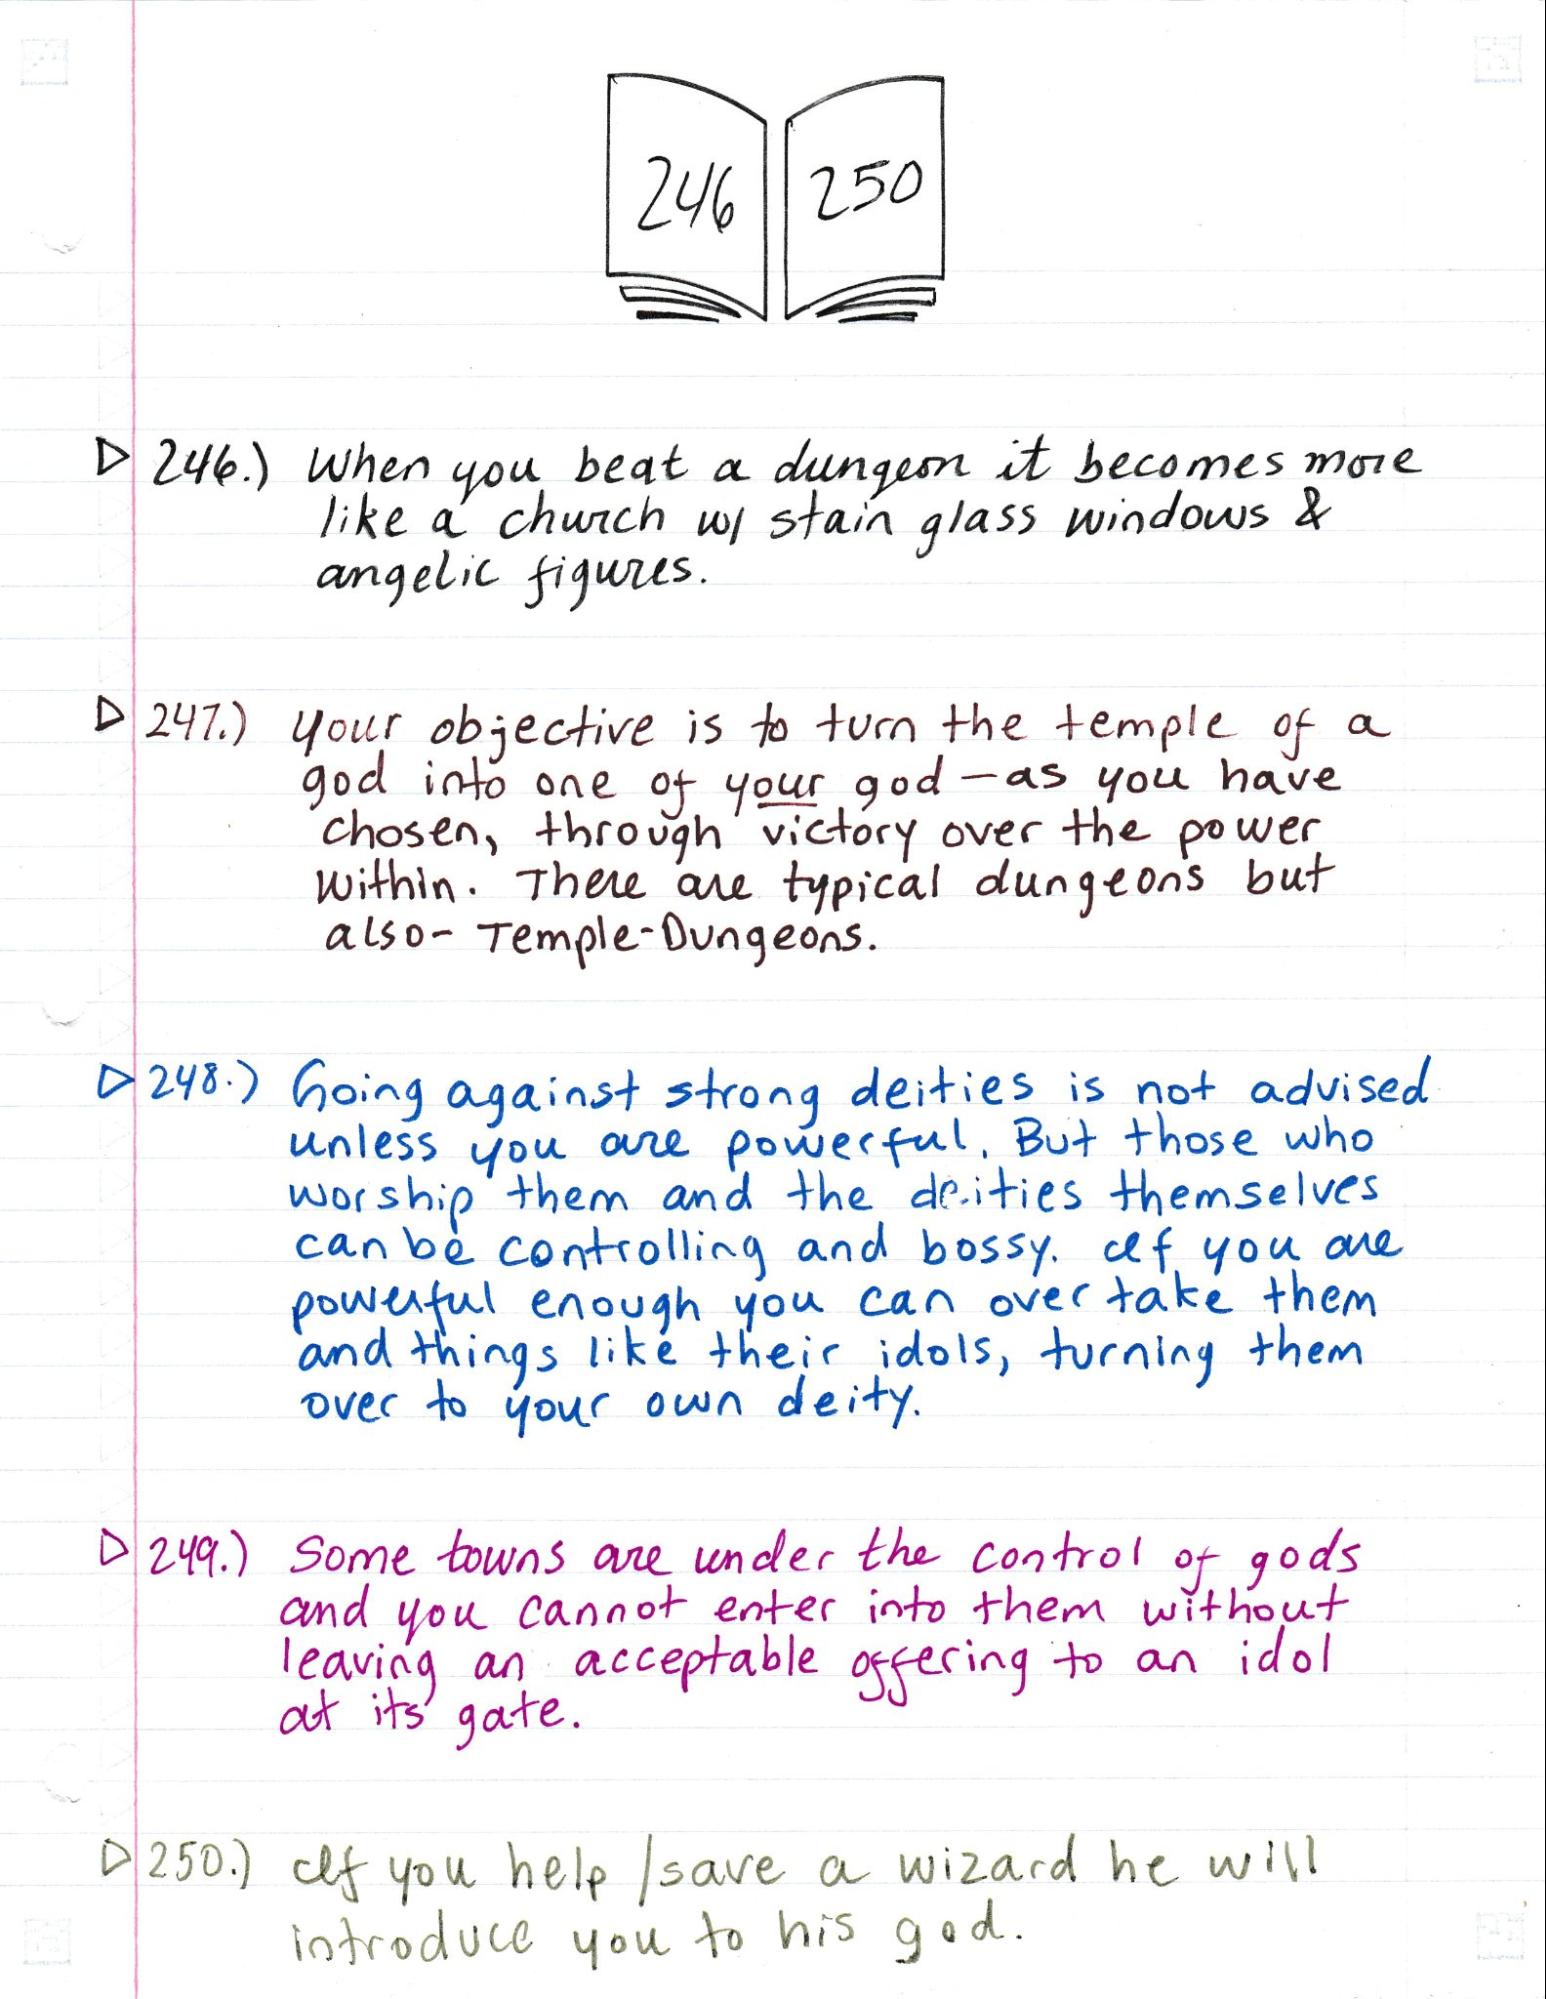 246 250
▷ 246.) When you beat a dungeon it becomes more
like a church w/ stain glass windows &
angelic figures.
▷ 247.) Your objective is to turn the temple of a
god into one of your god – as you have
chosen, through victory over the power
within. There are typical dungeons but
also- Temple-Dungeons.
▷ 248.) Going against strong deities is not advised
unless you are powerful. But those who
worship them and the deities themselves
can be controlling and bossy. If you are
powerful enough you can overtake them
and things like their idols, turning them
over to your own deity.
▷ 249.) Some towns are under the control of gods
and you cannot enter into them without
leaving an acceptable offering to an idol
at its gate.
▷ 250.) If you help /save a wizard he will
introduce you to his god.